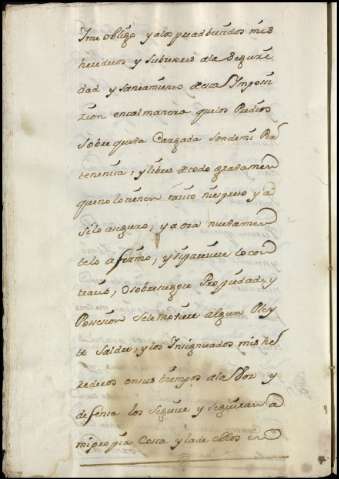 Y me obligo y a los por ad benidos mis
herederos y subsesores a la segure
dad y saneamiento de esta Ymposi
zion en tal manera que los Predios
sobre questa Cargada son de mi Per
tenencia; y libres de todo grabamen
que no lo tienen tacito ni expreso y a
si lo aseguro, y aora nuebamen
te lo afirmo, y si paresiere lo con
trario, o sobre su Propiedad, y
Posecion se le mobiere algun Pley
to saldre, y los Insignuados mis he
rederos en sus tiempos a la Vos y
defensa los seguire y seguiran a
mi propia Costa y la de ellos